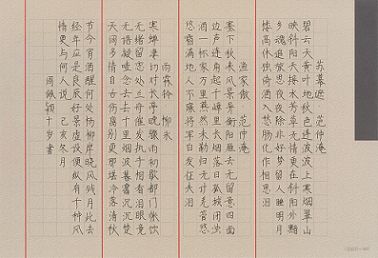 苏幕遮 范仲淹
碧云天黄叶地秋色连波波上寒烟翠山
映斜阳天接水芳草无情更在斜阳外黯
乡魂追旅思夜夜除非好梦留人睡明月
楼高休独倚酒入愁肠化作相思泪
渔家傲 范仲淹
塞下秋来风景异衡阳雁去无留意四面
边声连角起千嶂里长烟落日孤城闭浊
酒一杯家万里燕然未勒归无计羌管悠
悠霜满地人不寐将军白发征夫泪
雨霖铃 柳永
寒蝉凄切对长亭晚骤雨初歇都门帐饮
无绪留恋处兰舟催发执手相看泪眼竟
无语凝噎念去去千里烟波暮霭沉沉楚
天阔多情自古伤离别更那堪冷落清秋
节今宵酒醒何处杨柳岸晓风残月此去
经年应是良辰好景虚设便纵有千种风
情更与何人说 己亥冬月
周 颖十岁书